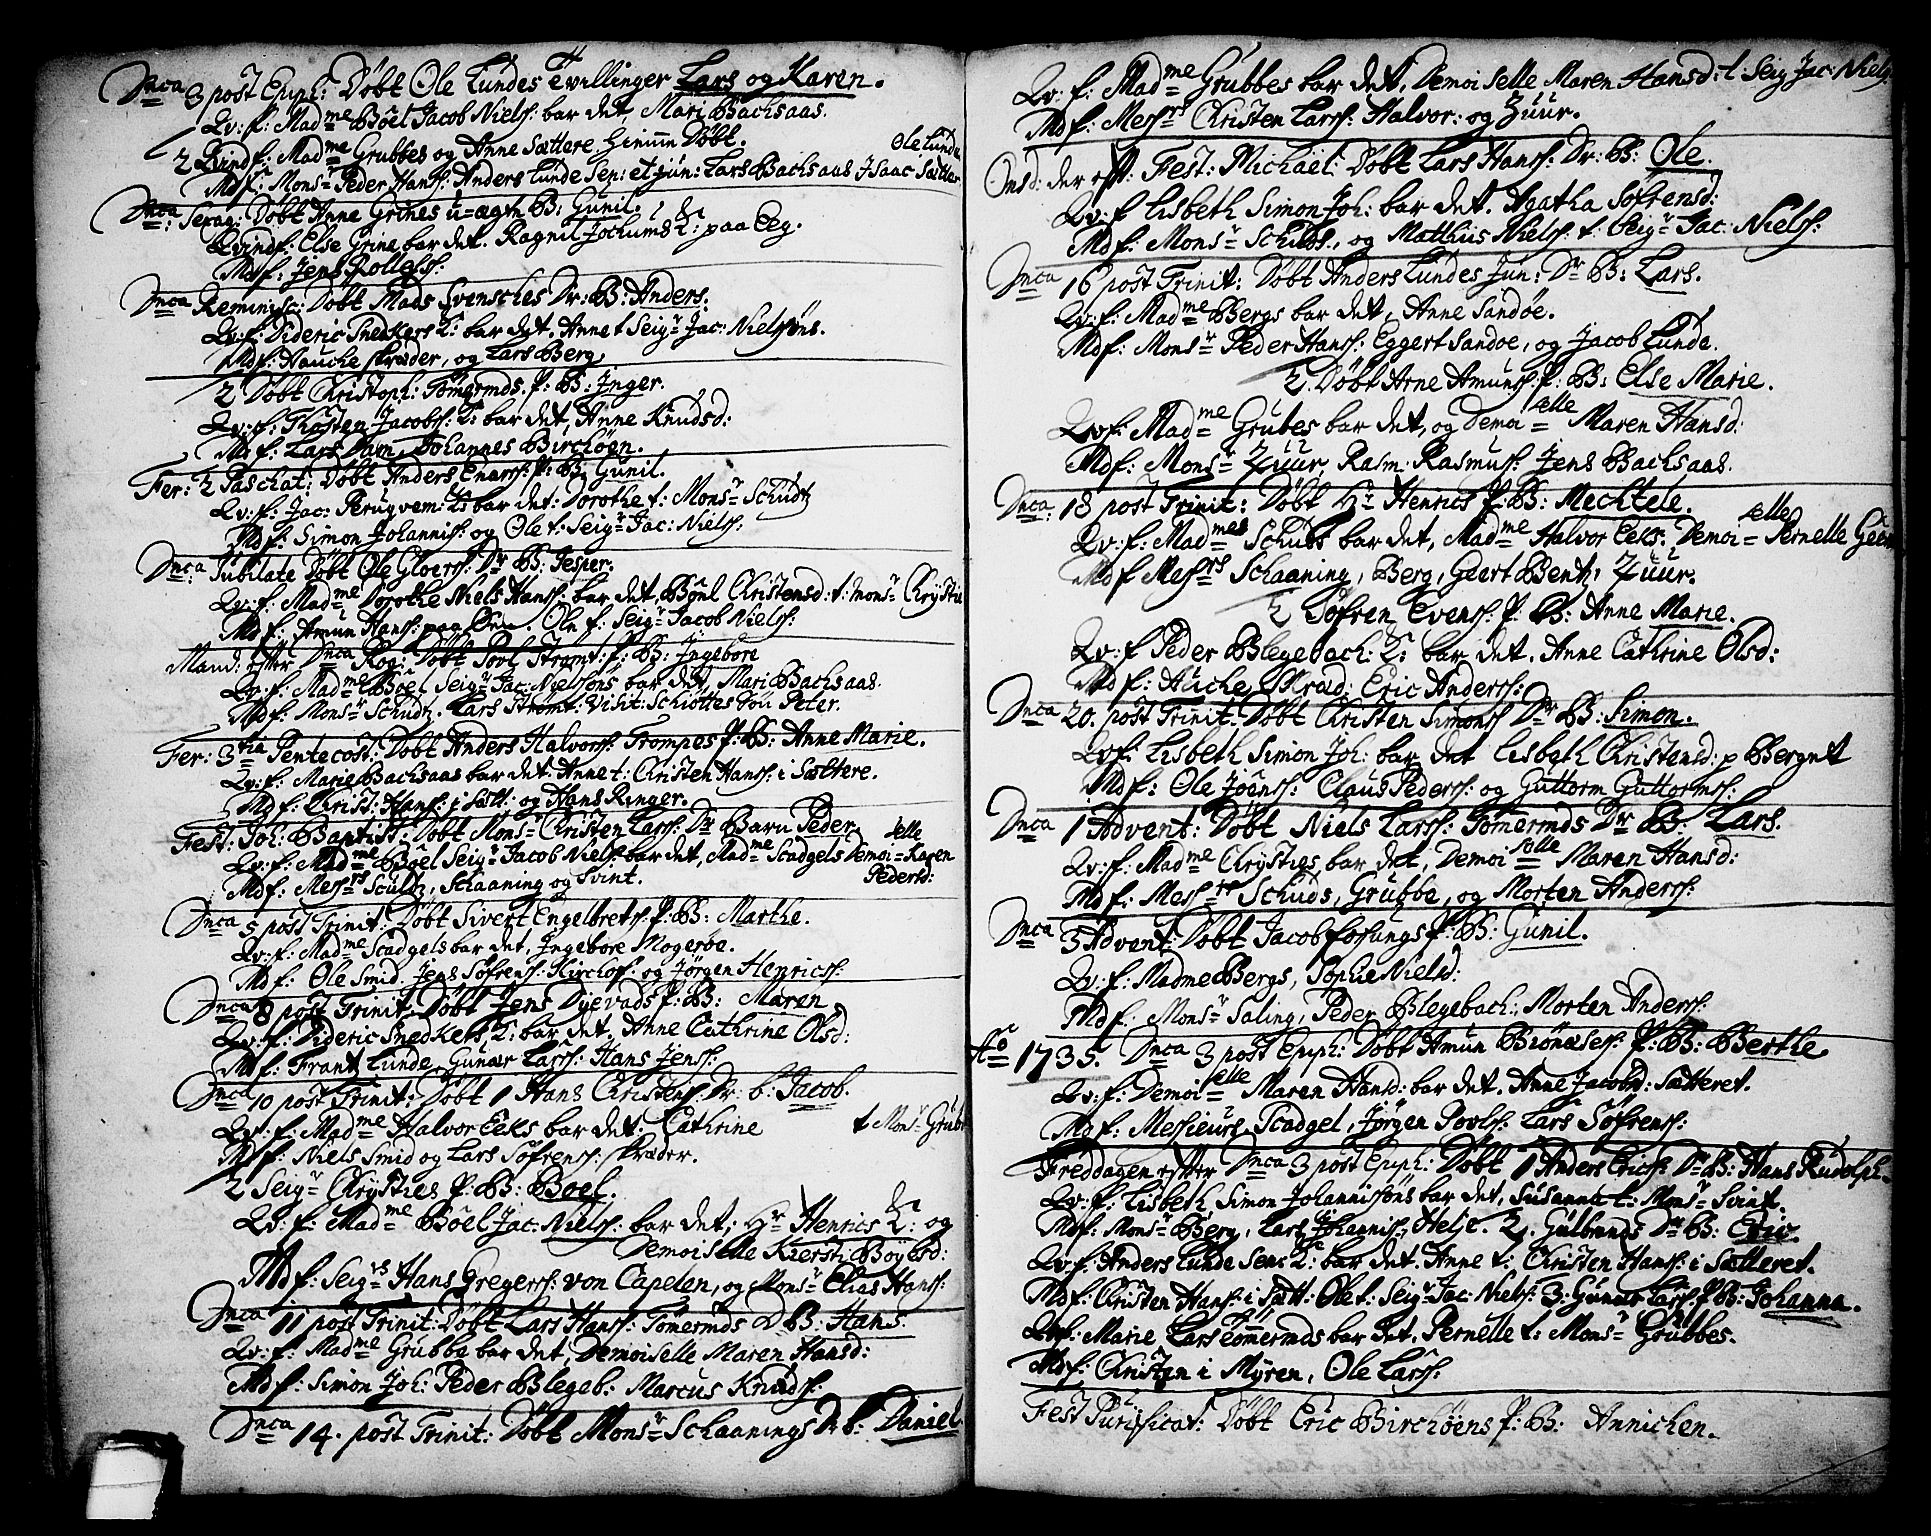 Dnca 3 post Epiph: Døbt Ole Lundes Tvillinger Lars og Karen.
Qv: f: Madme Böel Jacob Niels: bar det, Mari Bachsaas.
2 Qvindf: Madme Grubbes og Anne Sættere. Ole Lunde
Mdf: Monsr Peder Hanss: Anders Lunde Sen: et jun: Lars Bachsaas Isaac Sætter
Dnca: Sexag: Døbt Anne Grines u=ægte B: Gunil.
Qvindf: Else Grina bar det. Ragnil Jochums K: paa Eeg.
Mdf: Jens Rollefss:
Dnca Reminisc: Døbt Mads Svensches Dr: B: Anders.
Qv: f: Dideric Snedkers K: bar det. Anne t Seigr Jac: Nielsöns.
Mdf: Hauche skræder, og Lars Berg
2 Døbt Christoph: Tömermds P: B: Inger.
Qv: f: Thosten Jacobss: K: bar det, Anne Knudsd:
Mdf: Lars Dam, Johannes Birchöen.
Fer: 2 Paschat: Døbt Anders Enarss: P: B: Gunil.
Qv: f: Jac: Perugvem: K: bar det: Dorothe t: Monsr Schudtz
Mdf: Simon Johanniss: og Ole t: Seigr Jac: Nielss:
Dnca: Jubilate Døbt Ole Gloerss: Dr B: Jesper.
Qv: f: Madme Dorothe Niels Hanss: bar det, Böul Christensd: t: Monsr Chrÿsti
Mdf: Amun Hanss: paa Øen. Ole t: Seigr Jacob Nielss:
Mand: efter Dnca Rog: Døbt Povl Stromt: P: B: Ingebore
Qv: f: Madme Böel Seigr Jac: Nielsöns bar det, Mari Bachsaas.
Mdf: Monsr Schudtz. Lars Stromt: Visit: Schiöttes Søn Peter.
Fer: 3tia Pentecost: Døbt Anders Halvorss: Trompes P: B: Anne Marie.
Qv: f: Marie Bachsaas bar det. Anne t: Christen Hanss: i Sættere.
Mdf: Christ: Hanss: i Sætt: og Hans Ringer.
Fest: Joh: Baptist: Døbt Monsr Christen Larss: Dr Barn Peder
Qv: f: Madme Böel Seigr Jacob Niels: bar det, Madme Stadgels Demoiselle Karen Pedersd:
Mdf: Messrs Scultz, Schaaning og Svint.
Dnca 5 post Trinit: Døbt Sivert Engelbrets: P: B: Marthe.
Qv: f: Madme Stadgels bar det, Ingebore Mogeröe.
Mdf: Ole Smid. Jens Söfrens: Kirchof. og Jörgen Henricss:
Dnca 8 post Trinit: Døbt Jens Dÿevads P: B: Maren
Qv: f: Dideric Snedkers K: bar det, Anne Cathrine Olsd:
Mf: Frantz Lunde, Gunær Larss: Hans Jenss:
Dnca 10 post Trinit: Døbt 1 Hans Christens: Dr: b: Jacob.
Qv: f: Madme Halvor Eeks bar det. Cathrine t Monsr Grub
Mdf: Niels Smid og Lars Söfrenss: skræder.
2 Seigr Chrÿsties P: B: Boel.
Qv: f: Madme Böel Jac: Nielss: bar det: Hr Henrics K: og
Demoiselle Kiersti Böyesd:
Mdf: Seigrs Hans Gregerss: von Capelen, og Monsr Elias Hanss:
Dnca 11 post Trinit: Døbt Lars Hanss: Tömermds D B: Hans.
Qv: f: Madme Grubbe bar det, Demoiselle Maren Hansd:
Mdf: Simon Joh: Peder Blegeb: Marcus Knuds:
Dnca 14. post Trinit: Døbt Monsr Schaanings Dr b: Daniel
Qv: f: Madme Grubbes bar det, Demoiselle Maren Hansd: t Seig Jac: Niels
Mdf: Messrs Christen Larss: Halvor: og Zuur.
Onsd: der eft: Fest: Michael: Døbt Lars Hanss: Dr: B: Ole.
Qv: f Lisbeth Simon Joh: bar det. Agatha Söfrensd:
Mdf: Monsr Schibs, og Matthiis Nielss: t: Seigr Jac: Nielss:
Dnca 16 post Trinit: Døbt Anders Lundes Jun: Dr B: Lars.
Qv: f: Madme Bergs bar det, Anne Sandöe.
Mdf: Monsr Peder Hanss: Eggert Sandoe, og Jacob Lunde.
2. Døbt Arne Amuns: P: B: Else Marie.
Qvf: Madme Grubes bar det, og Demoiselle Maren Hansd:
Mdf: Monsr Zuur, Rasm: Rasmus: Jens Bachsaas.
Dnca: 18 post Trinit: Døbt Hr Henrics P: B: Mechtele.
Qv: f: Madmes Schubs bar det, Madme Halvor Eeks: Demoiselle Pernelle Geer
Mdf Messrs Schaaning, Berg, Geert Bentz, Zuur.
2 Söfren Evenss: P: B: Anne Marie.
Qv: f Peder Blegebach: K: bar det. Anne Cathrine Olsd:
Mdf: Hauche Skræd: Eric Anderss:
Dnca 20. post Trinit: Døbt Christen Simonss Dr B: Simon.
Qvf: Lisbeth Simon Joh: bar det Lisbeth Christensd: p Bergnet
Mdf: Ole Jöenss: Claus Pederss: og Guttorm Guttormss:
Dnca 1 Advent: Døbt Niels Larss: Tömermds Dr B: Lars.
Qv: f: Madme Chrÿsties, bar det, Demoiselle Maren Hansd:
Mdf: Messrs Schuds, Grubbe, og Morten Anderss:
Dnca 3 Advent: Døbt Jacob forsungs P: B: Gunil.
Qv: f: Madme Bergs, Sophie Nielsd:
Mdf: Monsr Saling, Peder Blegebach: Morten Anderss:
Ao 1735. Dnca 3 post Epiph: Døbt Amun Brönæses: P: B: Berthe
Qv: f: Demoiselle Maren Hansd: bar det. Anne Jacobsd: Sætteret.
Mdf: Messieurs, Stadgel, Jörgen Povlss: Lars Söfrenss:
Freddagen efter Dnca 3 post Epiph: Døbt 1 Anders Ericss: Dr B: Hans Rudolph.
Qv: f: Lisbeth, Simon Johannisöns bar det, Susanna t: Monsr Svint.
Mdf: Monsr Berg, Lars Johannis: Helje. 2. Gulbrands Dr B: Eric.
Qv: f: Anders Lunde Sen: K: bar det. Anne t: Christen Hanss: i Sætteret.
Mdf: Christen Hanss: i Sætt: Ole t: Seigr Jac: Nielss: 3: Gunær Larss: P: B: Johanna.
Qvf: Marie Lars Tömmermds bar det. Pernelle t: Monsr Grubbes.
Mdf: Christen i Myren, Ole Larss:
Fest Purificat: Døbt Eric Birchöens P: B: Annichen.